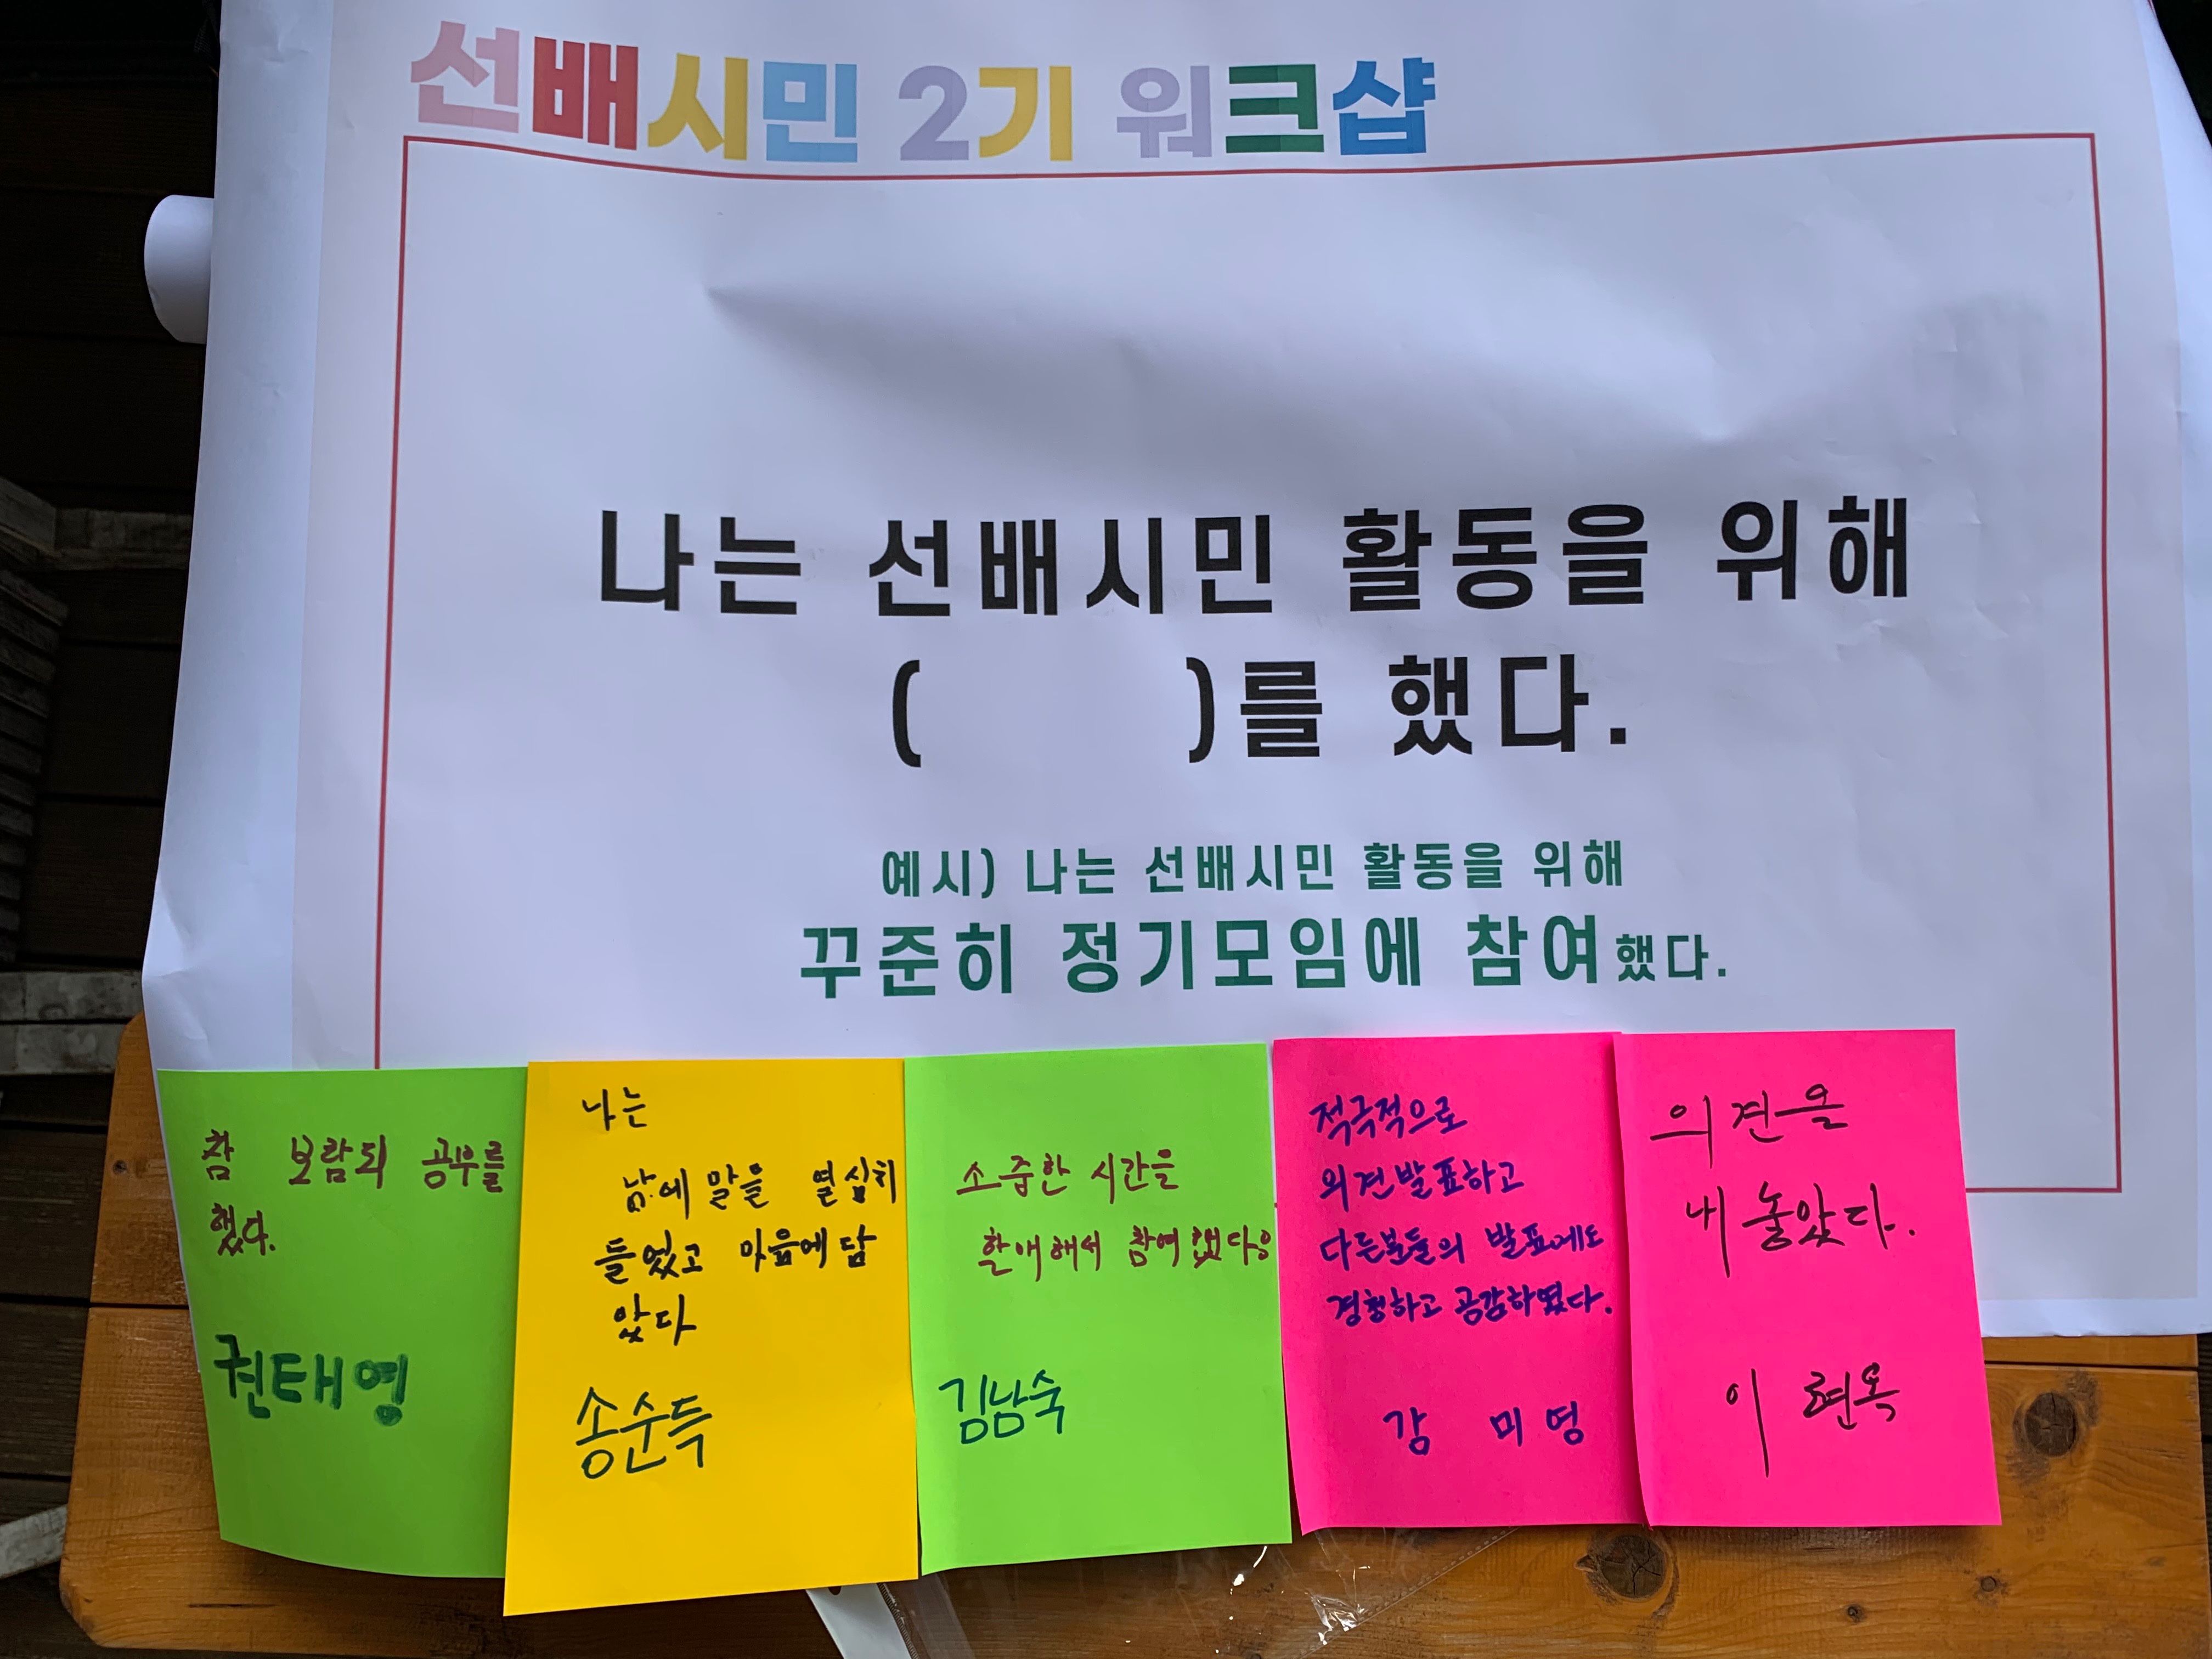 선배시민 2기 워크샵
나는 선배시민 활동을 위해
( )를 했다.
예시) 나는 선배시민 활동을 위해
꾸준히 정기모임에 참여했다.
참 보람되 공부를
했다.
권태영
나는
남에 말을 열심히
들었고 마음에 담
았다
송순득
소중한 시간을
할애해서 참여했다
김남숙
적극적으로
의견발표하고
다른분들의 발표에도
경청하고 공감하였다.
강 미 영
의견을
내 놓았다.
이 련옥